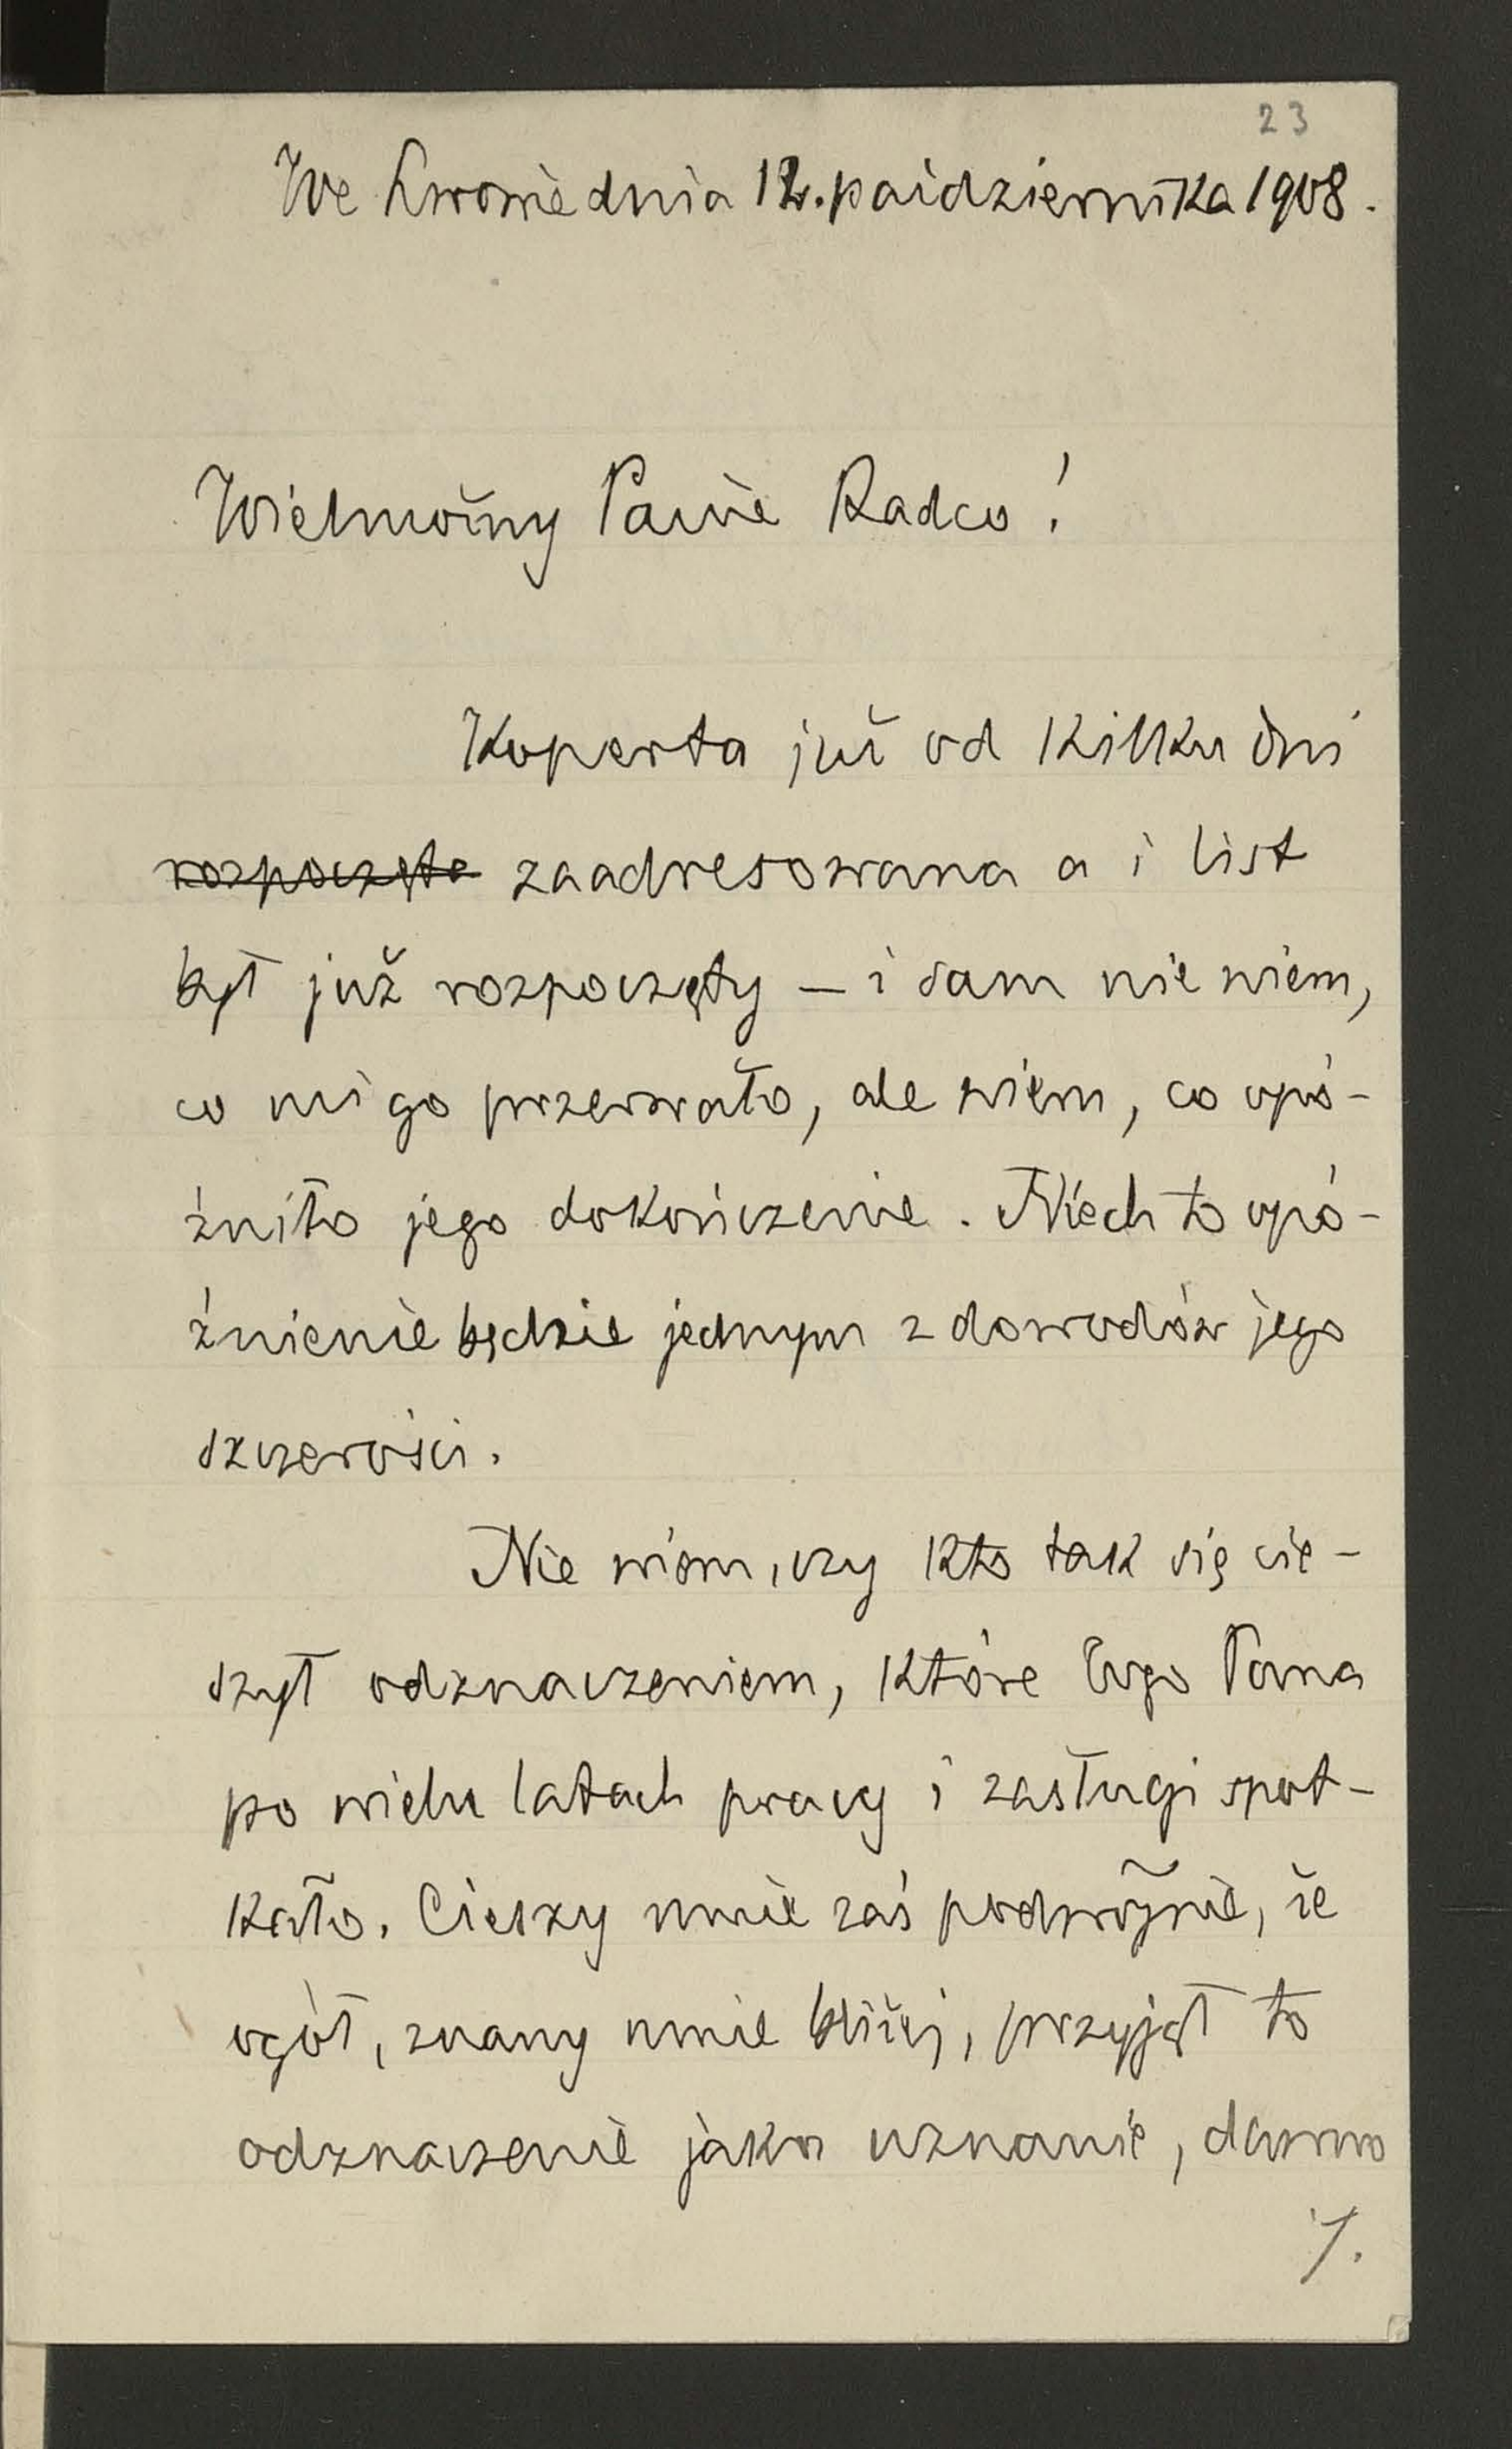 23
We Lwowie dnia 12. października 1908.
Wielmożny Panie Radco!
Koperta już od kilku dni
rozpoczęta zaadresowana a i list
był już rozpoczęty – i sam nie wiem,
co mi go przerwało, ale wiem, co opó-
źniło jego dokończenie. Niech to opó-
źnienie będzie jednym z dowodów jego
szczerości.
Nie wiem, czy kto tak się cie-
szył odznaczeniem, które Pana
po wielu latach pracy i zasługi spot-
kało. Cieszy mnie zaś podwójnie, że
ogół, znany mnie bliżej, przyjął to
odznaczenie jako uznanie, dawno
/.